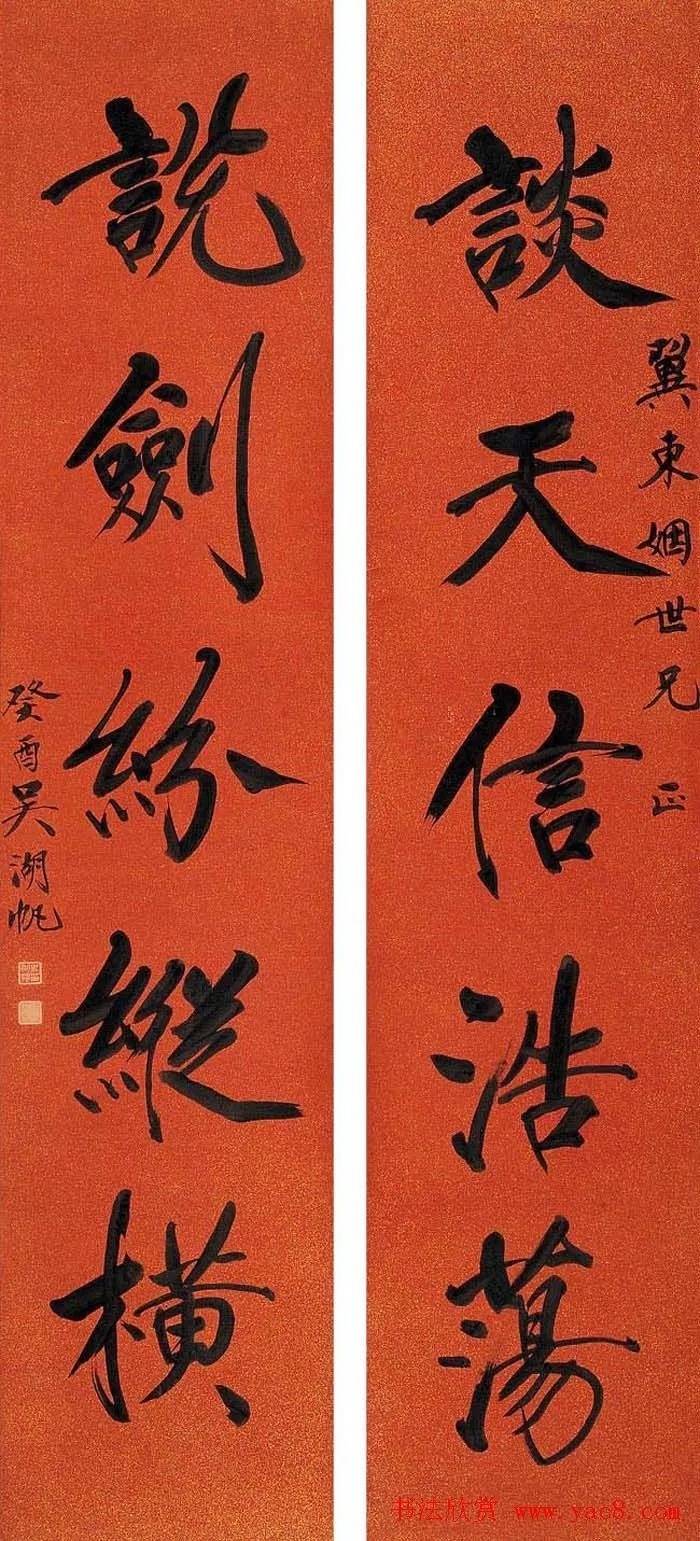 談天信浩蕩
翼東姻世兄 正
說劍紛縱橫
癸酉吳湖帆
书法欣赏 www.yac8.com